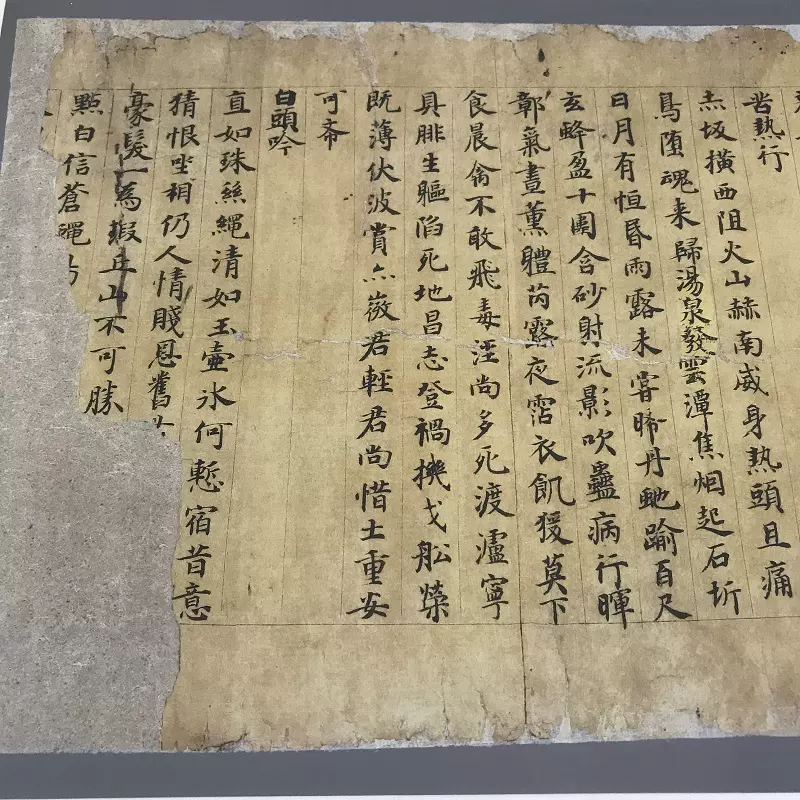 苦热行
赤坂橫西阻火山赫南威身热頭且痛
鳥墮魂来歸湯泉發雲潭焦烟起石圻
日月有恒昏雨露未甞晞丹虵踰百尺
玄蜂盈十圍含砂射流影吹蠱病行暉
鄣氣晝薰體芮露夜霑衣飢猨莫下
食晨禽不敢飛毒涇尚多死渡瀘寧
具腓生軀陷死地昌志登禍機戈舩榮
既薄伏波賞亦微君輕君尚惜士重安
可希
白頭吟
直如珠絲繩清如玉壺氷何慙宿昔意
猜恨坐相仍人情賤恩舊
豪髮一為瑕丘山不可勝
點白信蒼蠅